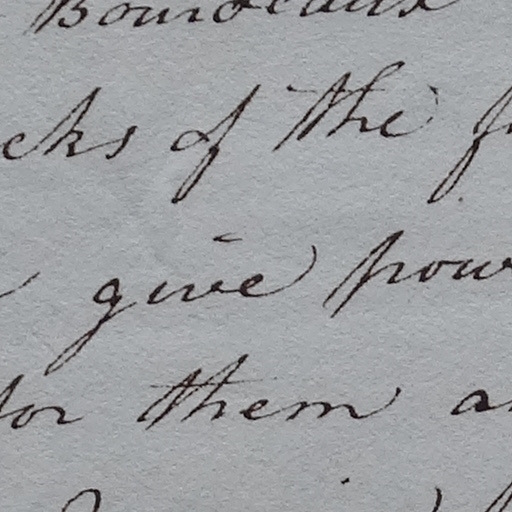 Bourdeaux
cks of the f
give pow
for them a